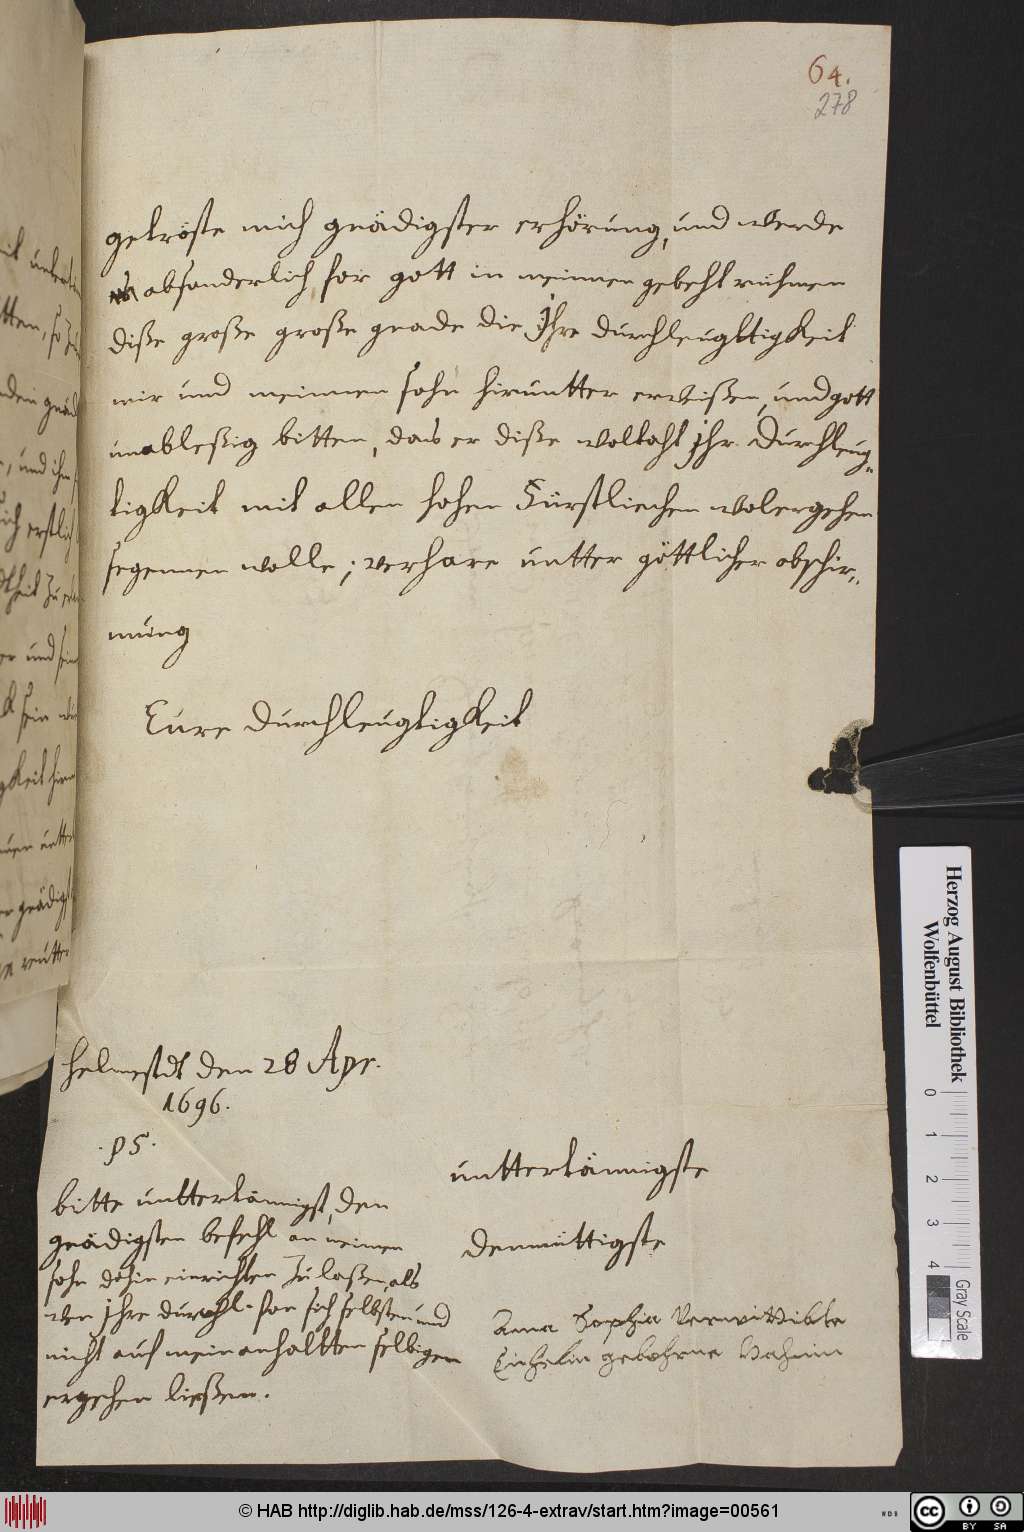 64.
278
getröste mich gnädigster erhörung, und werde
absonderlich for gott in meinnen gebeht rühmen
diße große große gnade die Ihre durchleugttigkeit
mir und meinnen sohn hiruntter erwißen, und gott
unableßig bitten, das er diße woltaht ihr durchleug-
tigkeit mit allen hohen Fürstliechen wolergehen
segennen wolle; verhare untter göttlicher obschir-
mung
Eure durchleugtigkeit
helmestdt den 28 Apr.
1696.
ps.
bitte unttertännigst, den
gnädigsten befehl an meinen
sohn dahin einrichten zu laßen, als
wen ihre durchl. for sich selbsten und
nicht auf mein anhaltten selbigen
ergehen ließen.
unttertännigste
demüttigste
Anna Sophia Verwittibte
gebohrne
Herzog August Bibliothek
Wolfenbüttel
0 1 2 3 4
Gray Scale
© HAB http://diglib.hab.de/mss/126-4-extrav/start.htm?image=00561
cc BY SA